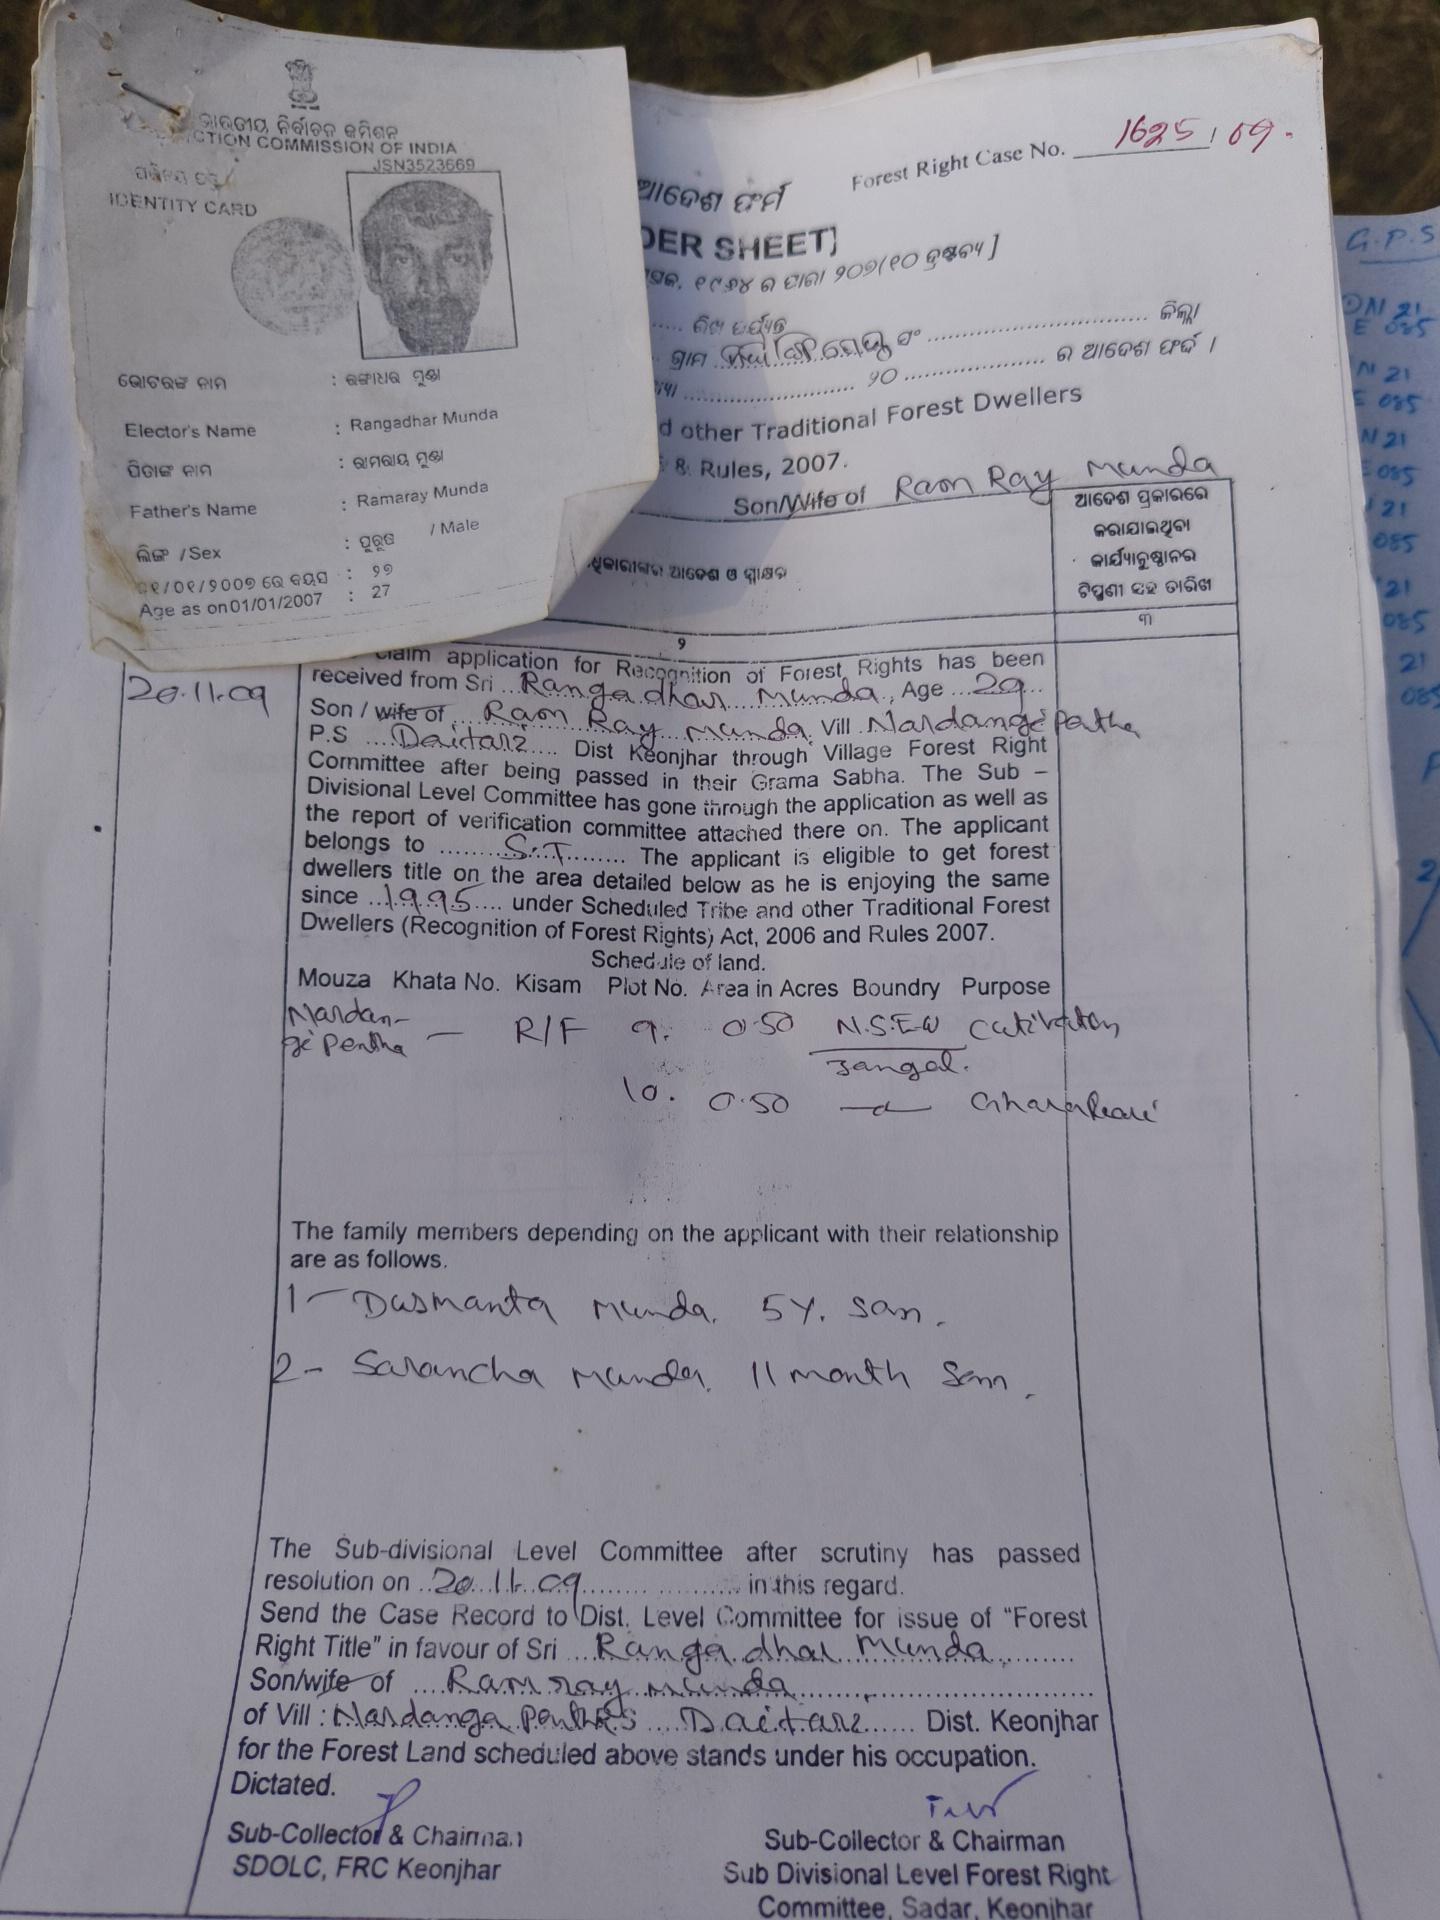 ଭାରତୀୟ ନିର୍ବାଚନ କମିଶନ
CTION COMMISSION OF INDIA
JSN3523669
IDENTITY CARD
ଭୋଟରଙ୍କ ନାମ : ରଙ୍ଗାଧର ମୁଣ୍ଡା
Elector's Name : Rangadhar Munda
ପିତାଙ୍କ ନାମ : ରାମରାୟ ମୁଣ୍ଡା
Father's Name : Ramaray Munda
ଲିଙ୍ଗ / Sex : ପୁରୁଷ / Male
୦୧/୦୧/୨୦୦୭ ରେ ବୟସ : ୨୭
Age as on 01/01/2007 : 27
Forest Right Case No. 1625 / 09.
ଆଦେଶ ଫର୍ମ
DER SHEET]
..... ରିଖ ପର୍ଯ୍ୟନ୍ତ
ଗ୍ରାମ ସଂ ..... ଜିଲ୍ଲା
..... ୨୦ ..... ର ଆଦେଶ ଫର୍ଦ୍ଦ ।
d other Traditional Forest Dwellers
& Rules, 2007.
Son/Wife of Ram Ray Munda
ଧିକାରୀଙ୍କର ଆଦେଶ ଓ ସ୍ୱାକ୍ଷର
ଆଦେଶ ପ୍ରକାରରେ
କରାଯାଇଥିବା
କାର୍ଯ୍ୟାନୁଷ୍ଠାନର
ଟିପ୍ପଣୀ ସହ ତାରିଖ
୨ ୩
20.11.09
claim application for Recognition of Forest Rights has been
received from Sri Rangadhar Munda, Age 29
Son / wife of Ram Ray Munda Vill Nardangi pentha
P.S Daitari Dist Keonjhar through Village Forest Right
Committee after being passed in their Grama Sabha. The Sub –
Divisional Level Committee has gone through the application as well as
the report of verification committee attached there on. The applicant
belongs to S.T The applicant is eligible to get forest
dwellers title on the area detailed below as he is enjoying the same
since 1995 under Scheduled Tribe and other Traditional Forest
Dwellers (Recognition of Forest Rights) Act, 2006 and Rules 2007.
Schedule of land.
Mouza Khata No. Kisam Plot No. Area in Acres Boundry Purpose
Nardan-
gi Pentha — R/F 9. 0.50 N.S.E.W Cultivation
Jangal.
10. 0.50 —"— Gharabari
The family members depending on the applicant with their relationship
are as follows.
1 – Dusmanta Munda. 5Y. Son.
2 – Sarancha Munda. 11 month Son.
The Sub-divisional Level Committee after scrutiny has passed
resolution on 20.11.09 in this regard.
Send the Case Record to Dist. Level Committee for issue of “Forest
Right Title” in favour of Sri Rangadhar Munda
Son/wife of Ram ray munda
of Vill : Nardanga Pentha PS Daitari Dist. Keonjhar
for the Forest Land scheduled above stands under his occupation.
Dictated.
Sub-Collector & Chairman
SDOLC, FRC Keonjhar
Sub-Collector & Chairman
Sub Divisional Level Forest Right
Committee, Sadar, Keonjhar
G.P.S